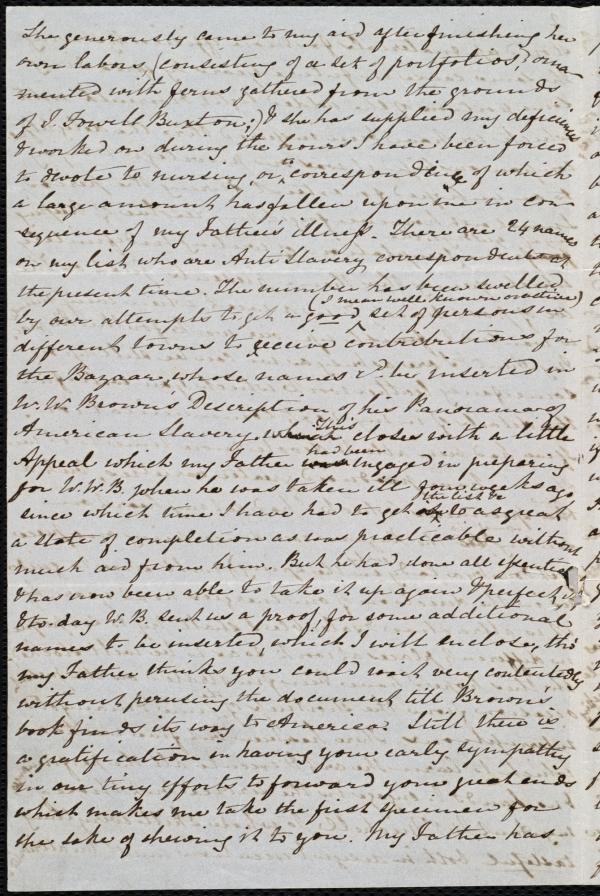 She generously came to my aid after finishing her
own labors, (consisting of a set of portfolios, orna
mented with ferns gathered from the grounds
of J. Fowell Buxton;) & she has supplied my deficiencies
& worked on during the hours I have been forced
to devote to nursing, or to corresponding of which
a large amount has fallen upon me in con
sequence of my Father's illness. There are 24 names
on my list who are Anti Slavery correspondents at
the present time. The number has been swelled
(I mean well known or active)
by our attempts to get a good set of persons in
different towns to receive contributions for
the Bazaar, whose names are to be inserted in
W. W. Brown's Description of his Panorama of
American Slavery. which This closes with a little
Appeal which my Father was had been engaged in preparing
for W.W.B. when he was taken ill four weeks ago,
since which time I have had to get the list to as great
a state of completion as was practicable without
much aid from him. But he had done all essential
& has now been able to take it up again & perfect it
& to-day W. B. sent us a proof, for some additional
names to be inserted, which I will enclose, tho'
my Father thinks you could wait very contentedly
without perusing the document till Brown's
book finds its way to America. Still there is
a gratification in having your early sympathy
in our tiny efforts to forward your great ends
which makes me take the first specimen for
the sake of shewing it to you. My Father has